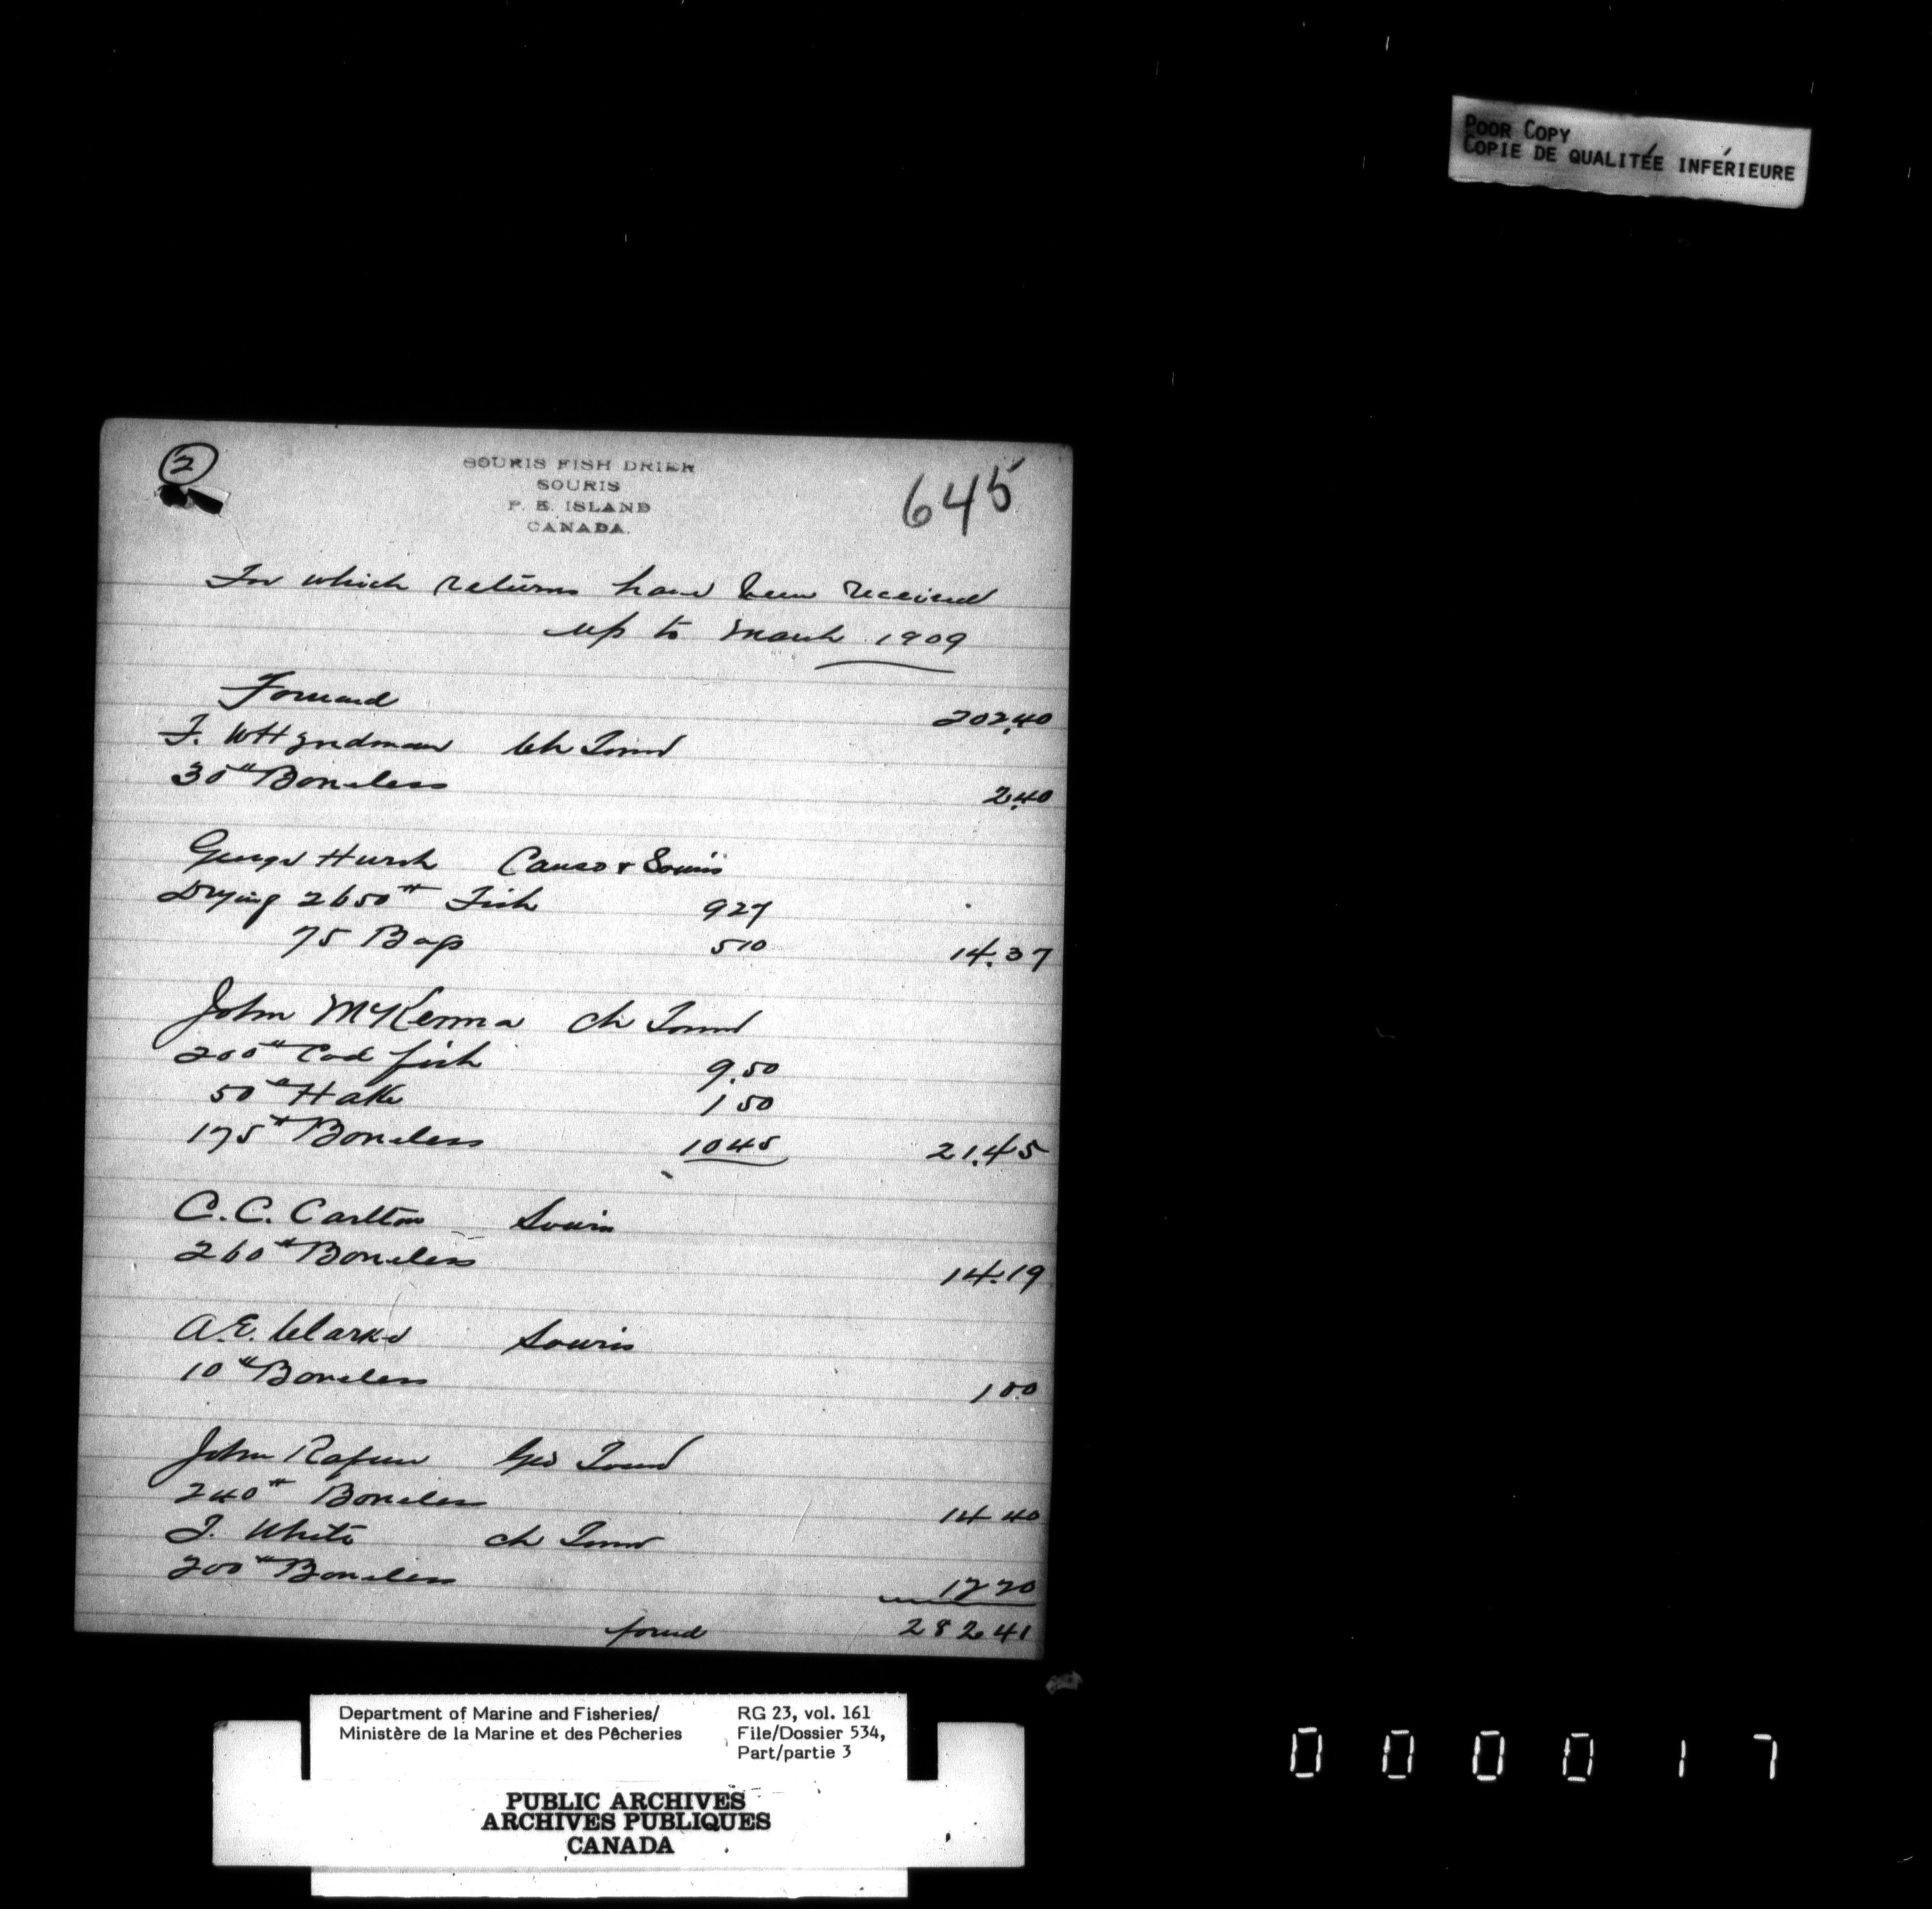 POOR COPY
COPIE DE QUALITÉE INFÉRIEURE
2
SOURIS FISH DRIER
SOURIS
P. E. ISLAND
CANADA.
645
For which returns have been received
up to March 1909
Forward 202.40
F. W Hyndman Ch Town
30# Boneless 2.40
George Hursh Canso & Souris
Drying 2650# Fish 927
75 Bags 510 14.37
John McKenna Ch Town
200# Cod fish 9.50
50# Hake 1 50
175# Boneless 10 45 21.45
C. C. Carlton Souris
260# Boneless 14.19
A. E. Clarke Souris
10# Boneless 1 00
John Geo Town
240# Boneless 14 40
J. White Ch Town
200# Boneless 12 20
forwd 282 41
Department of Marine and Fisheries/
Ministère de la Marine et des Pêcheries
RG 23, vol. 161
File/Dossier 534,
Part/partie 3
PUBLIC ARCHIVES
ARCHIVES PUBLIQUES
CANADA
000017